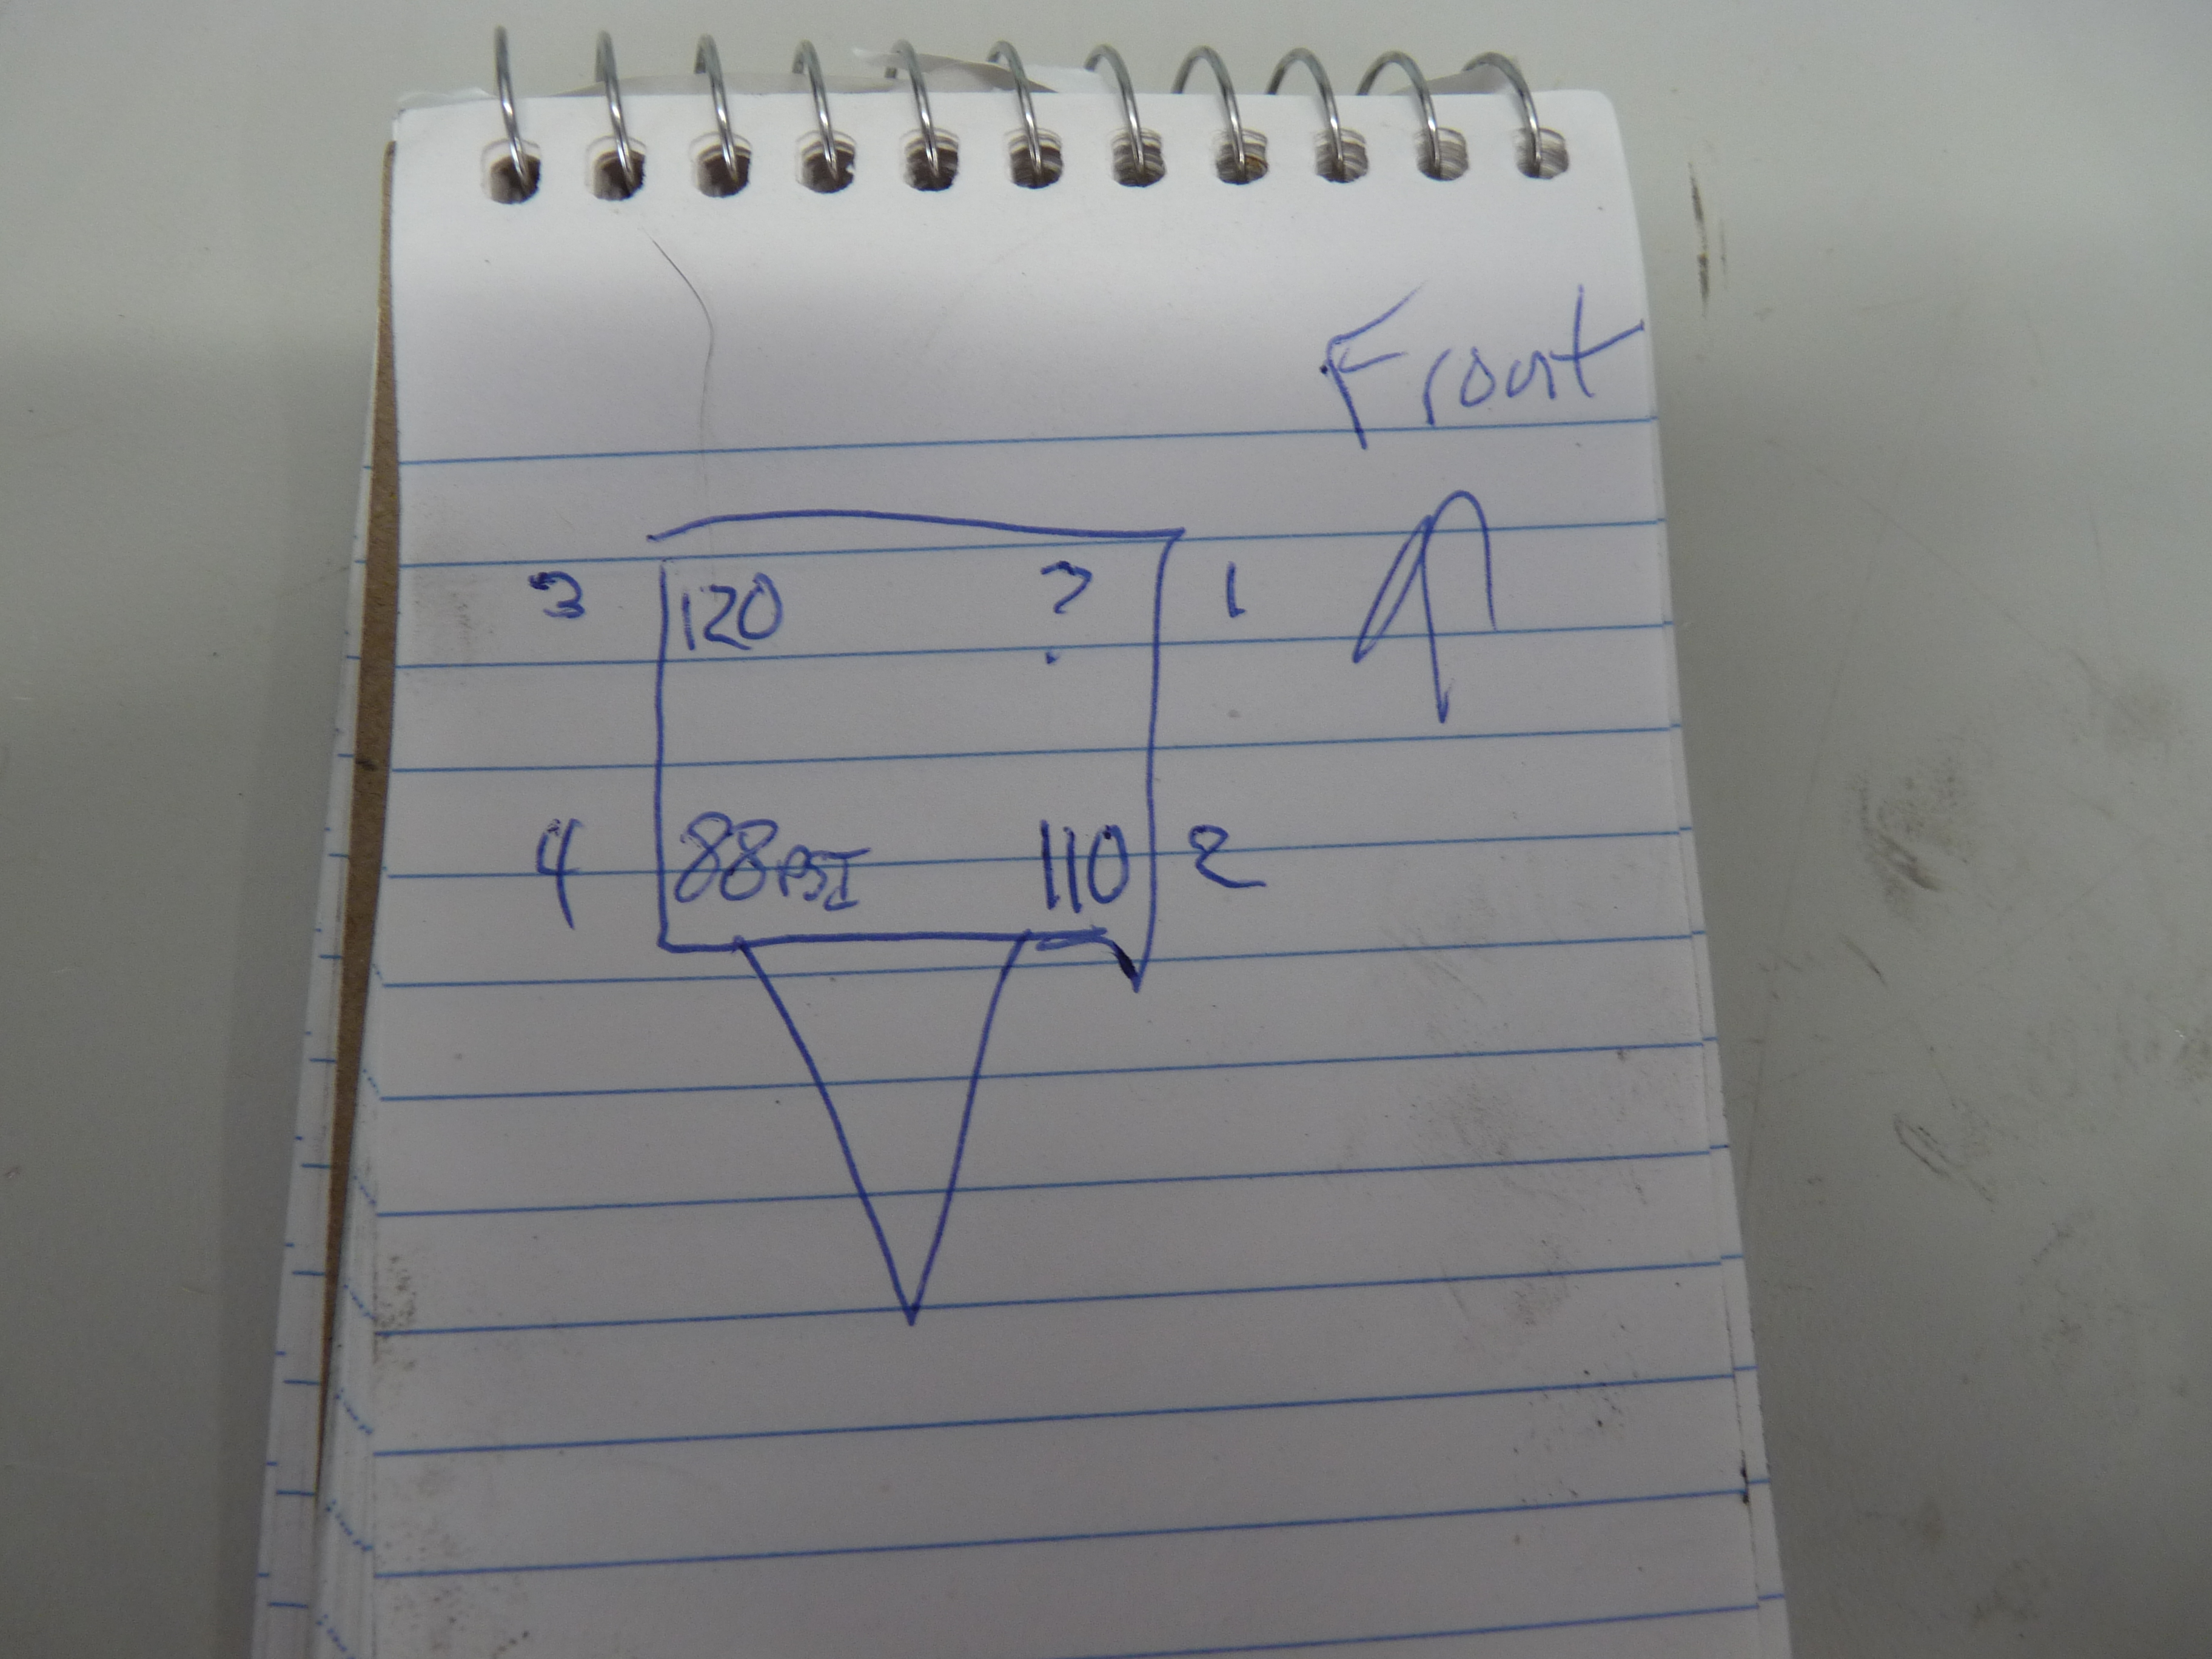 Front
3 120 ? 1
4 88PSI 110 2